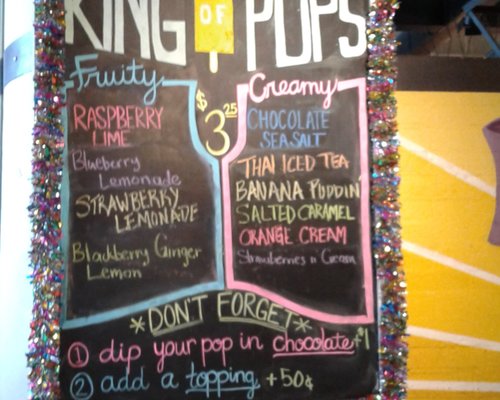 KING OF POPS
Fruity
RASPBERRY
LIME
Blueberry
Lemonade
STRAWBERRY
LEMONADE
Blackberry Ginger
Lemon
$3.25
Creamy
CHOCOLATE
SEA SALT
THAI ICED TEA
BANANA PUDDIN'
SALTED CARAMEL
ORANGE CREAM
Strawberries n Cream
*DON'T FORGET*
1 dip your pop in chocolate +$1
2 add a topping +50¢